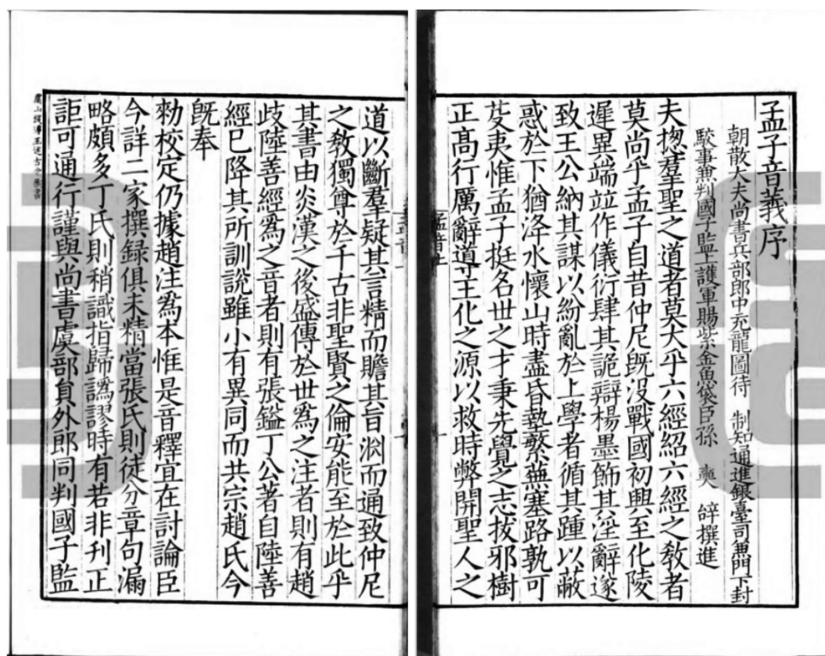 孟子音義序
朝散大夫尚書兵部郎中充龍圖待 制知通進銀臺司兼門下封
駮事兼判國子監上護軍賜紫金魚袋臣孫 奭 等撰進
夫揔羣聖之道者莫大乎六經紹六經之教者
莫尚乎孟子自昔仲尼旣没戰國初興至化陵
遲異端並作儀衍肆其詭辯楊墨飾其淫辭遂
致王公納其謀以紛亂於上學者循其踵以蔽
惑於下猶洚水懷山時盡昏墊繁蕪塞路孰可
芟夷惟孟子挺名世之才秉先覺之志拔邪樹
正高行厲辭導王化之源以救時弊開聖人之
道以斷羣疑其言精而贍其旨淵而通致仲尼
之教獨尊於千古非聖賢之倫安能至於此乎
其書由炎漢之後盛傳於世爲之注者則有趙
歧陸善經爲之音者則有張鎰丁公著自陸善
經已降其所訓說雖小有異同而共宗趙氏今
旣奉
勑校定仍據趙注爲本惟是音釋宜在討論臣
今詳二家撰録俱未精當張氏則徒分章句漏
略頗多丁氏則稍識指歸譌謬時有若非刊正
詎可通行謹與尚書虞部員外郎同判國子監
虞山錢遵王述古堂藏書